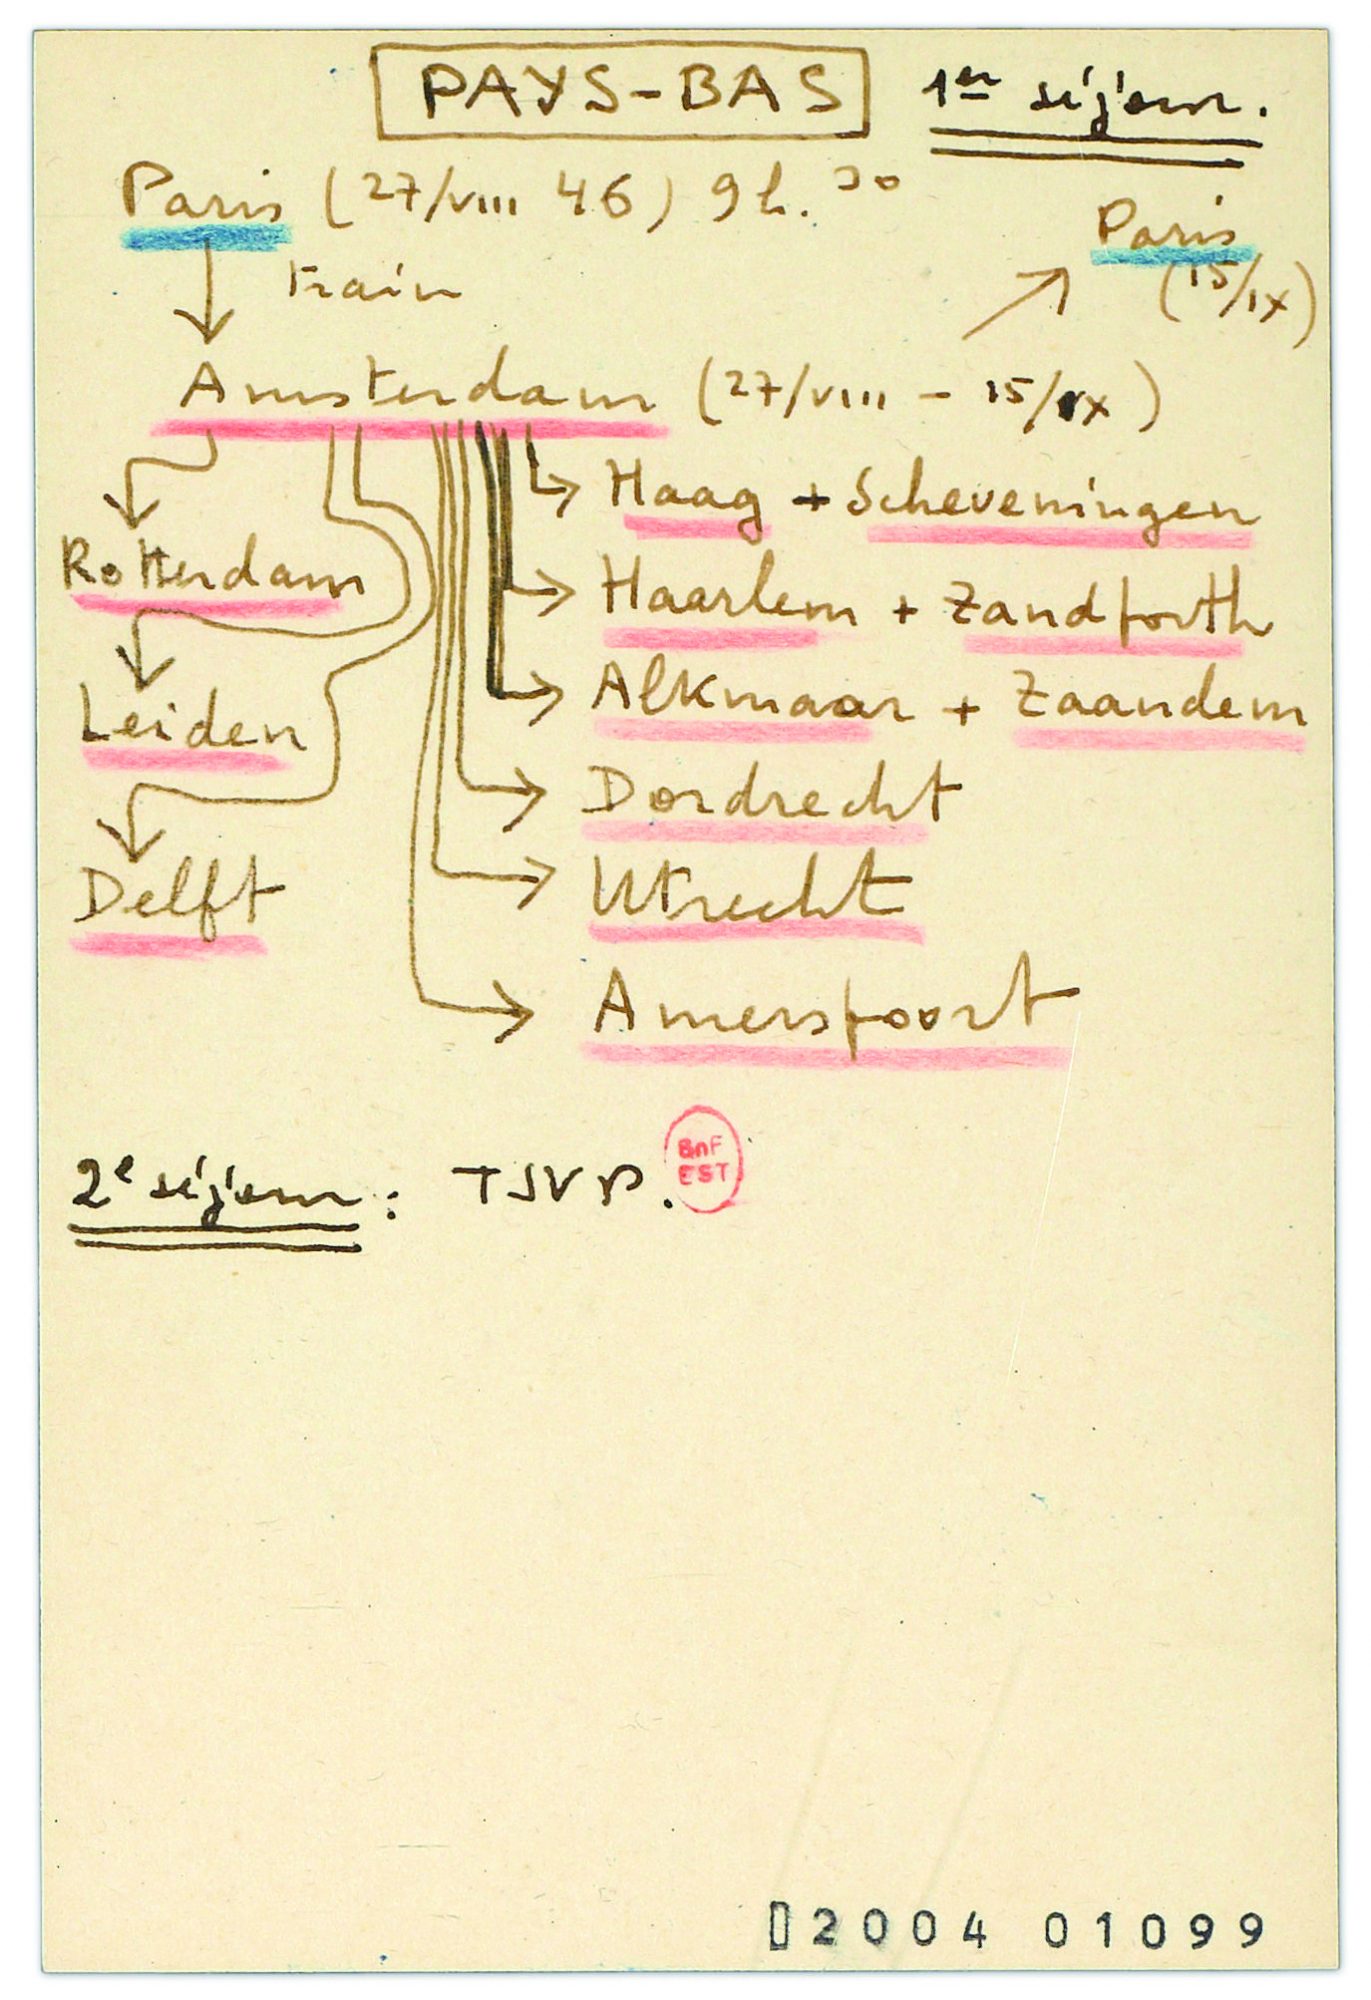 PAYS-BAS 1er séjour.
Paris (27/VIII 46) 9h. 30
Paris
(15/IX)
train
Amsterdam (27/VIII - 15/IX)
Haag + Scheveningen
Rotterdam
Haarlem + Zandforth
Leiden
Alkmaar + Zaandem
Dordrecht
Delft
Utrecht
Amersfoort
2e séjour : TSVP.
BnF
EST
D2004 01099